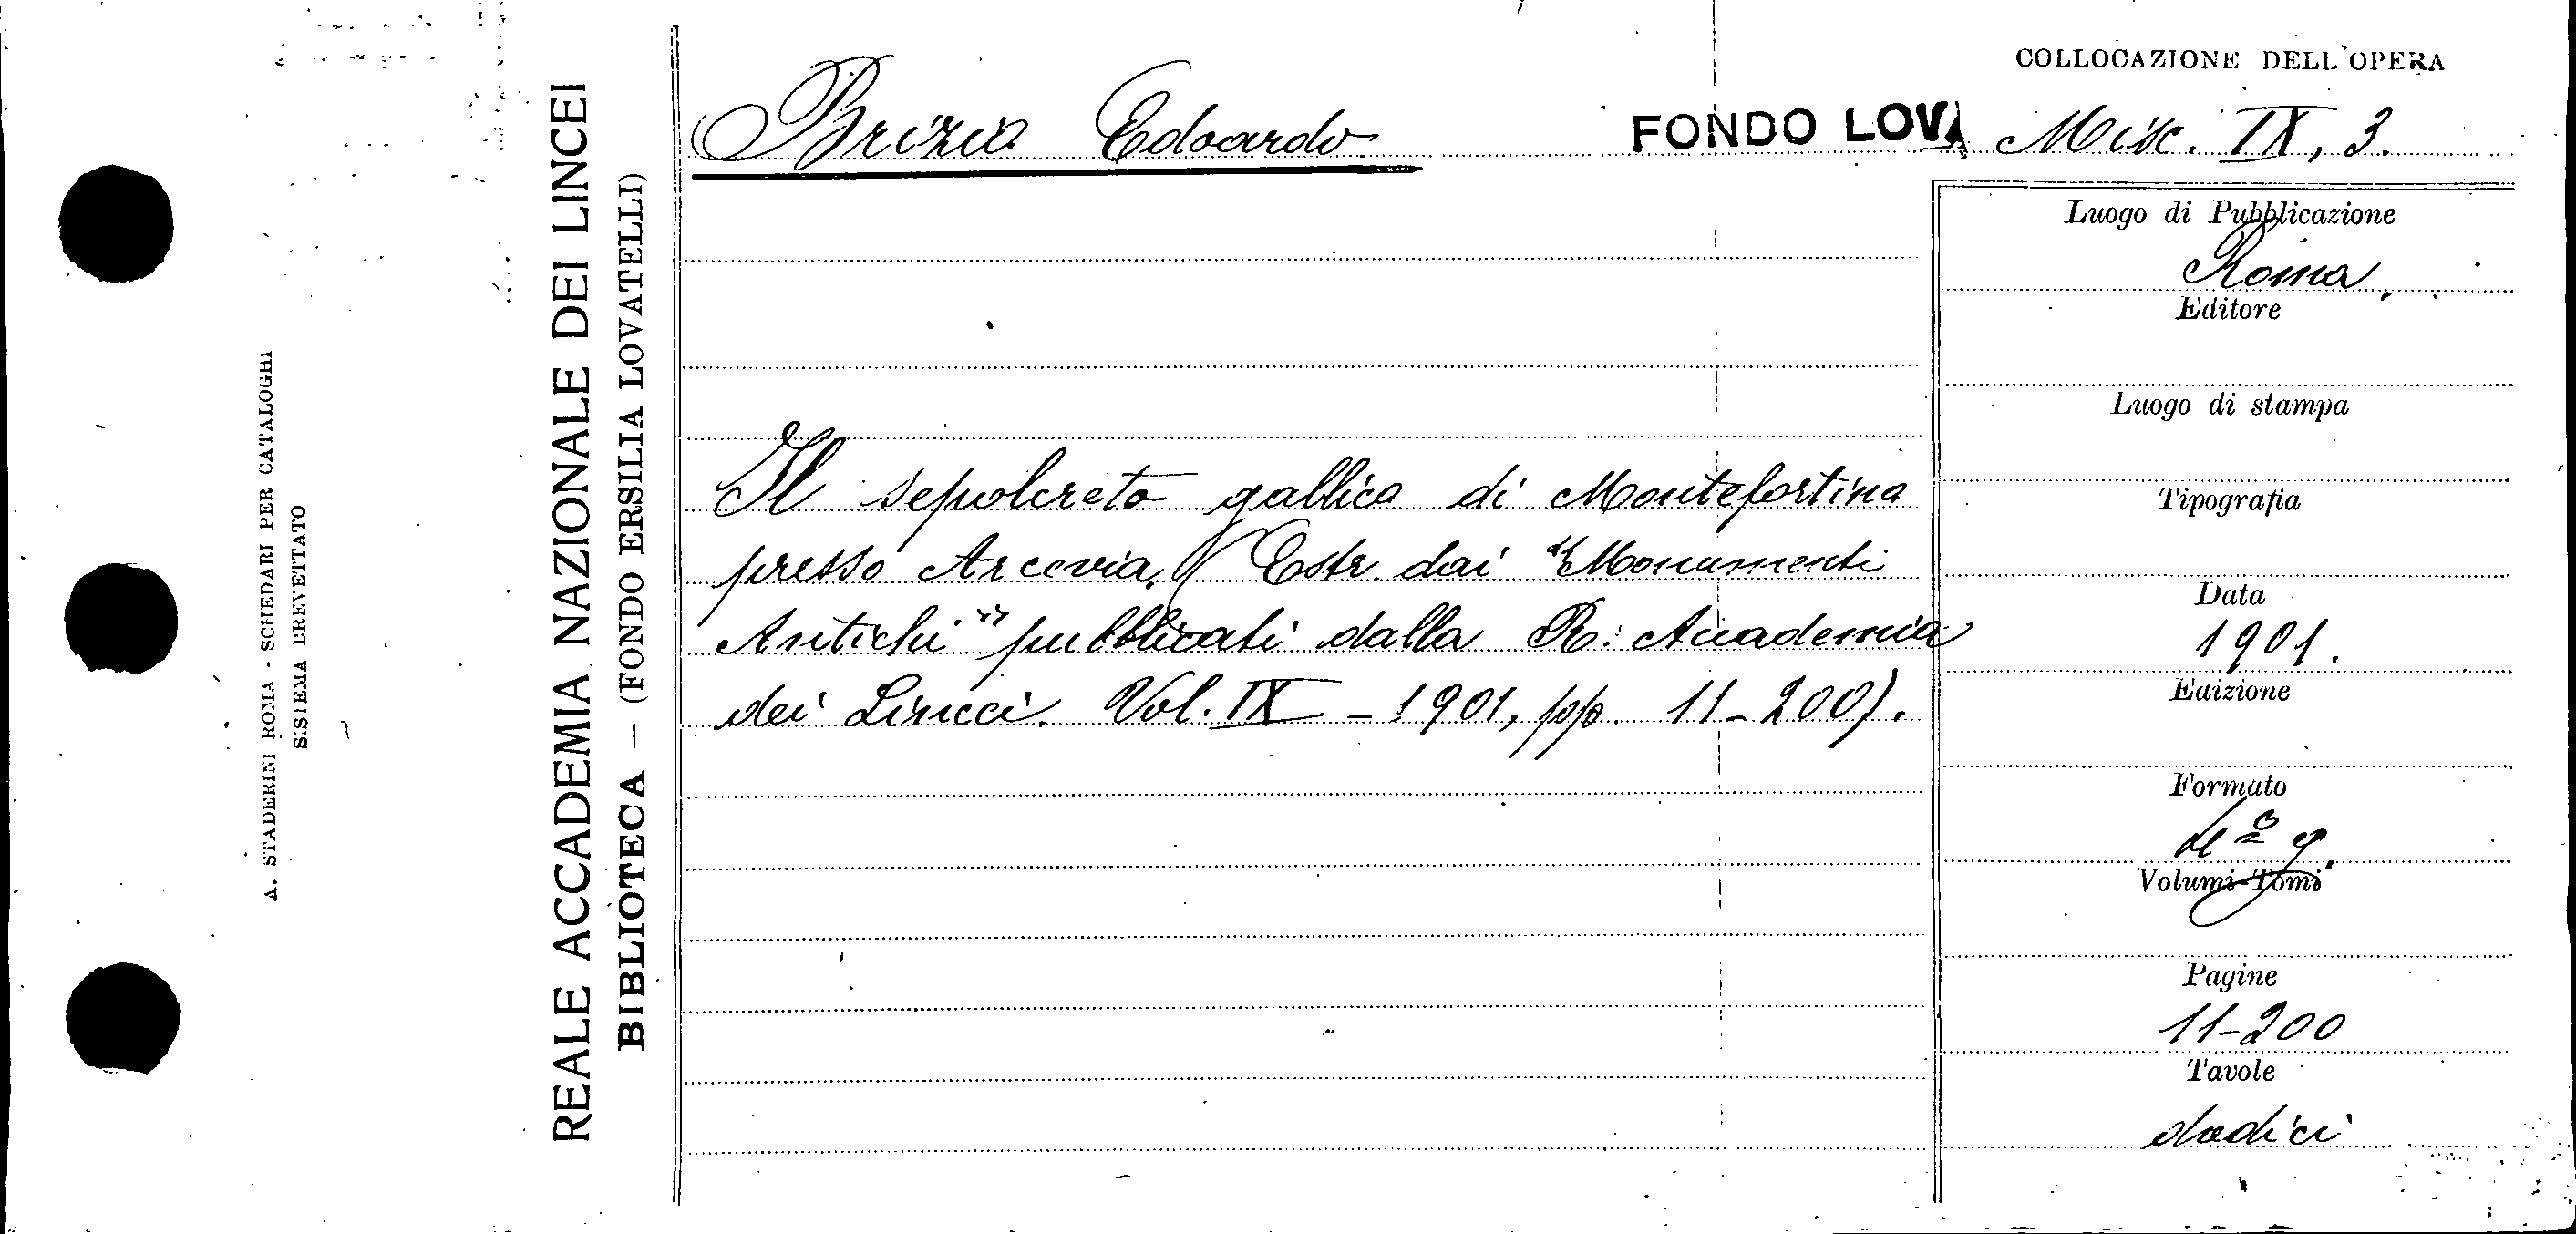 A. STADERINI ROMA - SCHEDARI PER CATALOGHI
SISTEMA BREVETTATO
REALE ACCADEMIA NAZIONALE DEI LINCEI
BIBLIOTECA — (FONDO ERSILIA LOVATELLI)
COLLOCAZIONE DELL'OPERA
Brizio Edoardo
FONDO LOVA Misc. IX, 3.
Il sepolcreto gallico di Montefortino
presso Arcevia. (Estr. dai "Monumenti
Antichi" pubblicati dalla R. Accademia
dei Lincei. Vol. IX - 1901, pp. 11-200).
Luogo di Pubblicazione
Roma.
Editore
Luogo di stampa
Tipografia
Data
1901.
Edizione
Formato
4º g.
Volumi-Tomi
Pagine
11-200
Tavole
dodici